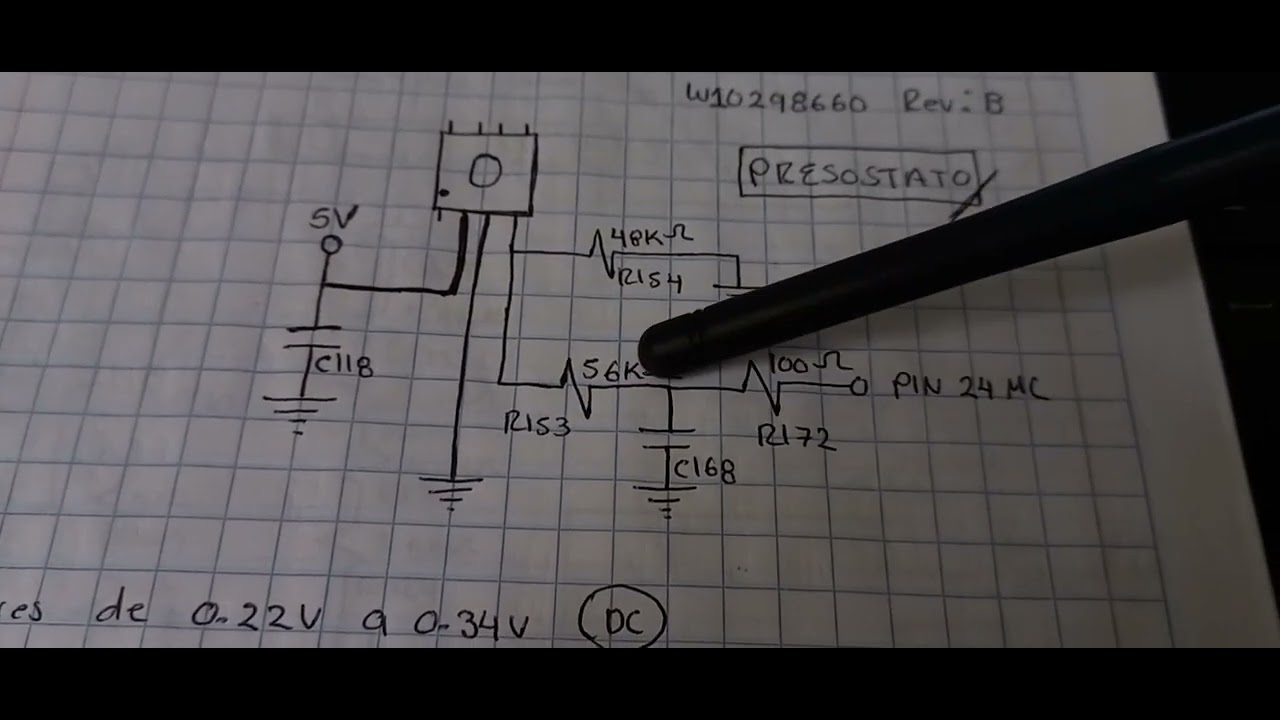 W10298660 Rev: B
PRESOSTATO
5V
48KΩ
R154
C118
56K
100Ω
PIN 24 MC
R153
R172
C168
de 0.22V a 0.34V DC